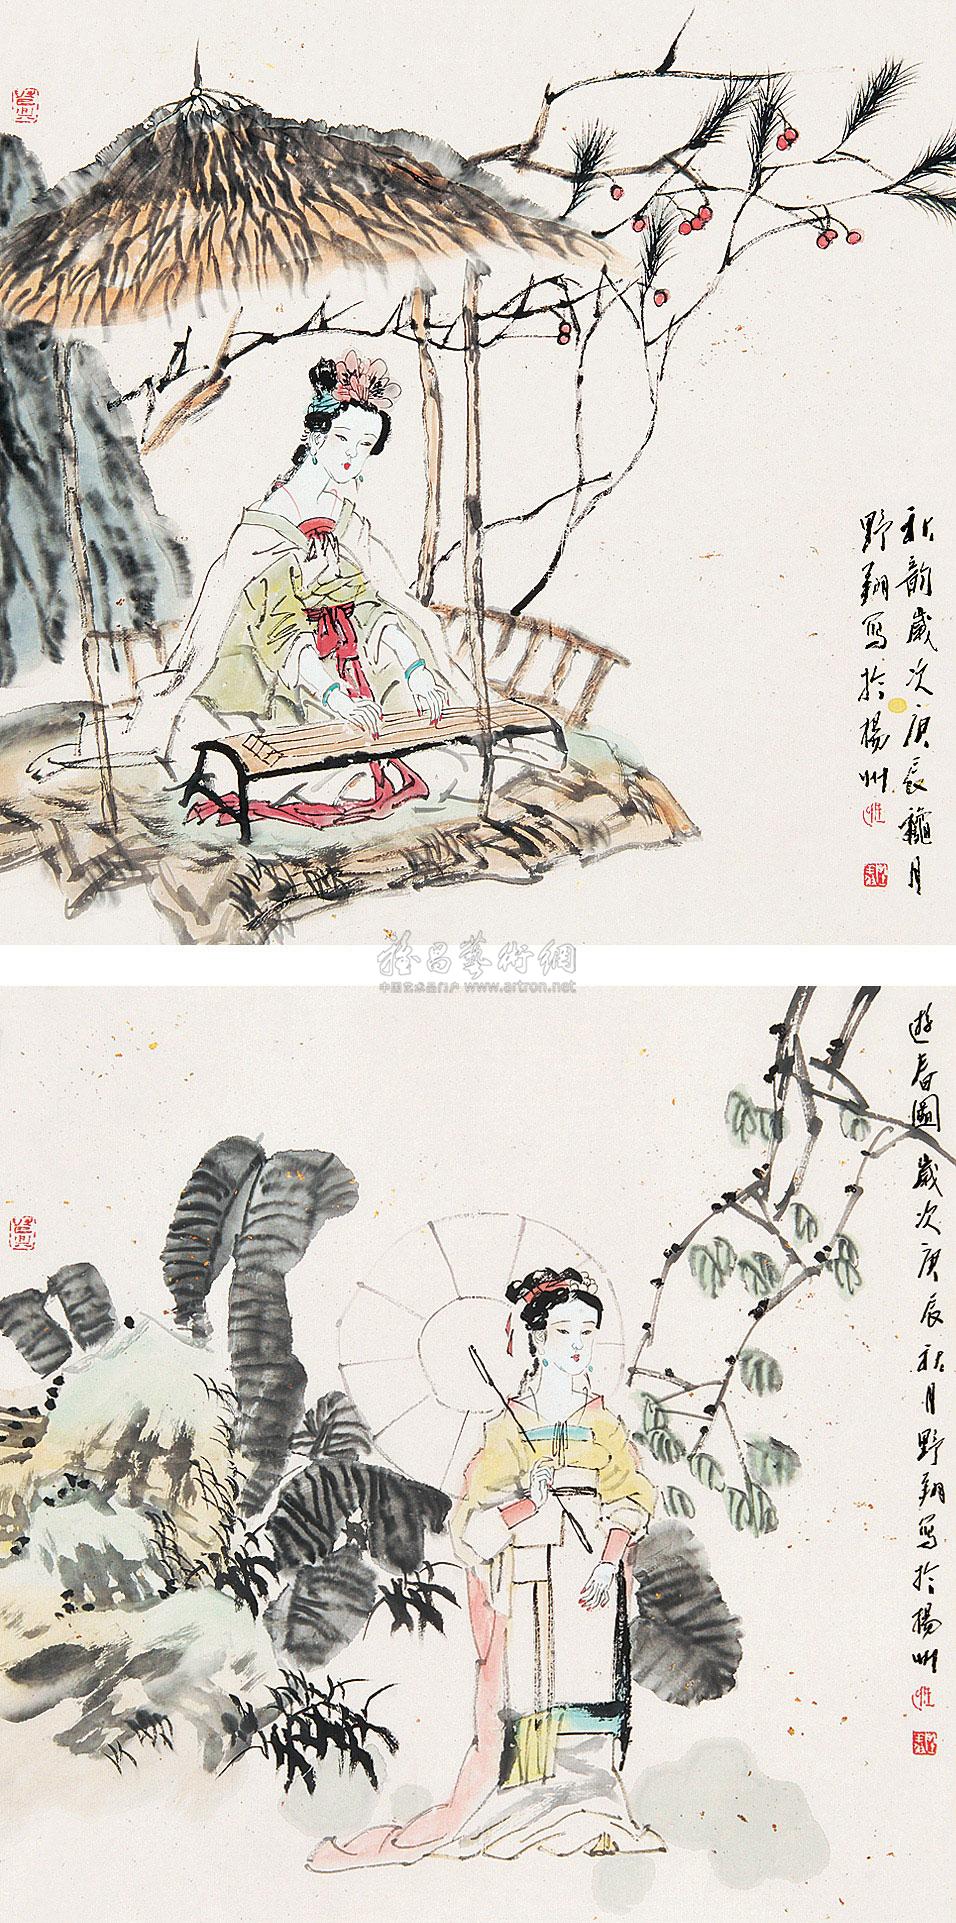 秋韵歲次庚辰龝月
野翔写於揚州
雅昌藝術網
中国艺术品门户 www.artron.net
遊春圖歲次庚辰秋月野翔写於揚州